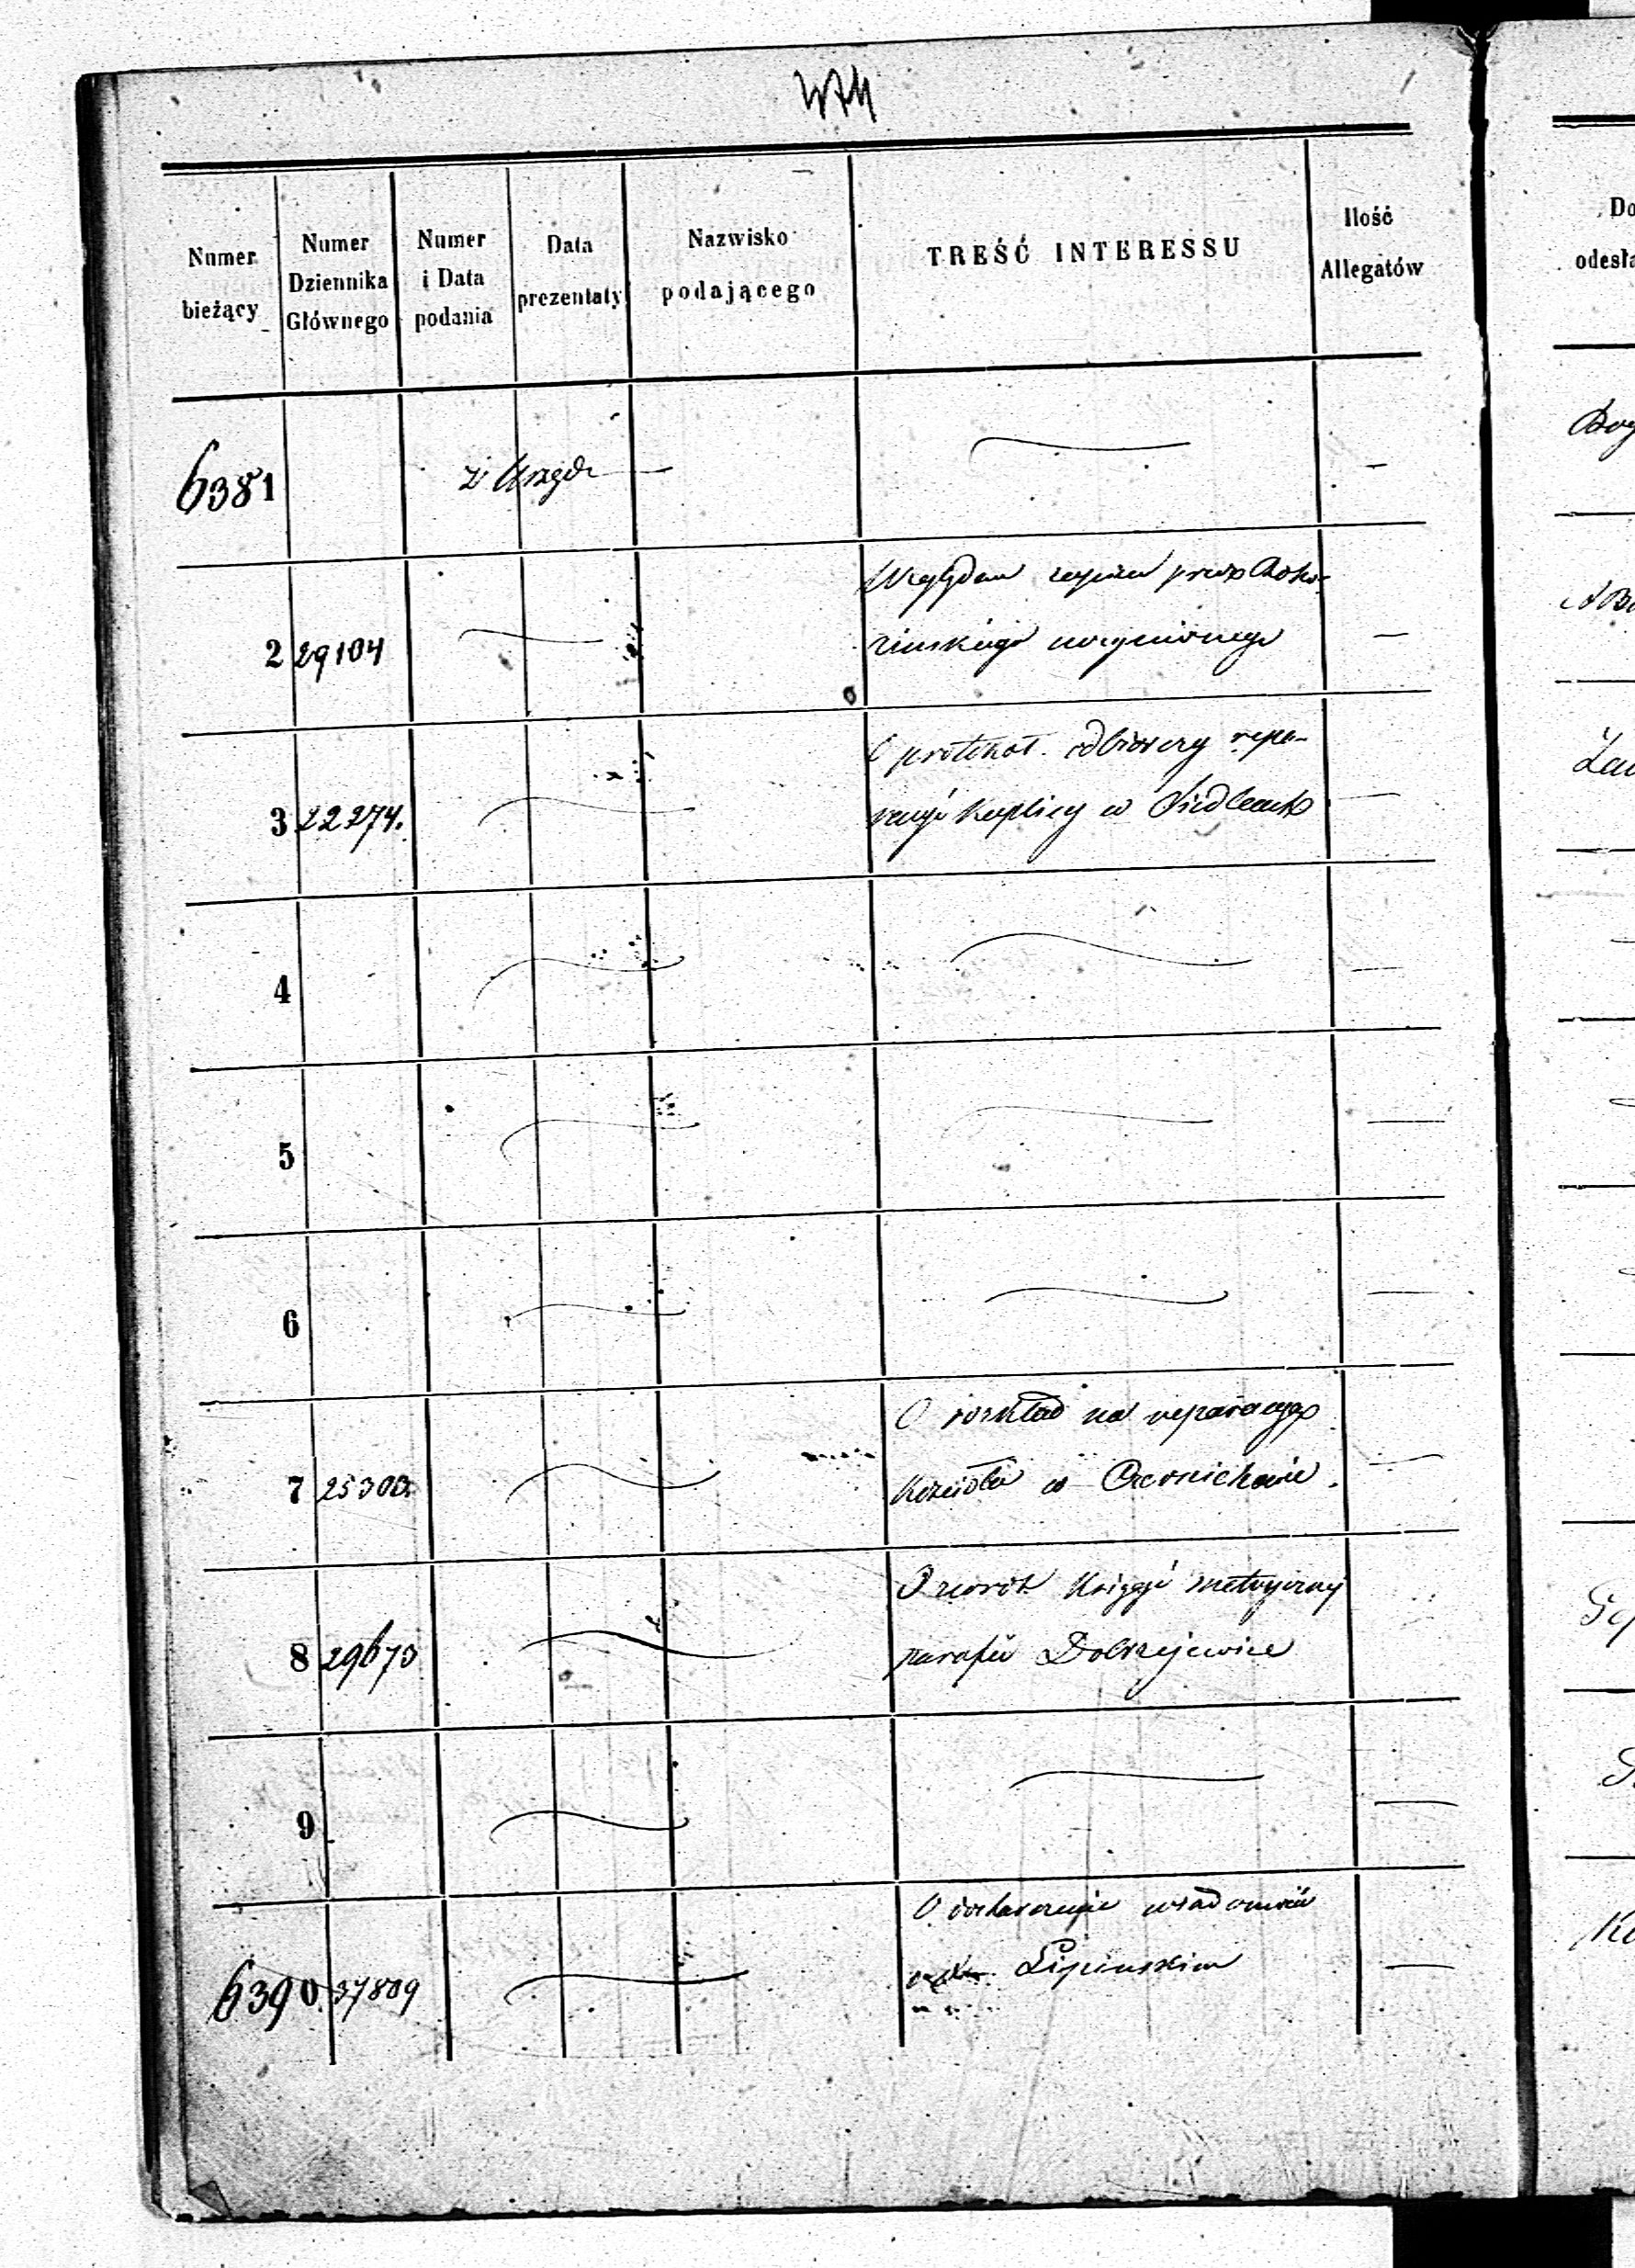 Numer bieżący
Numer Dziennika Głównego
Numer i Data podania
Data prezentaty
Nazwisko podającego
TREŚĆ INTERESSU
Ilość Allegatów
6381
z Urzędu
2 29104
Względem zapisu przez
uczynionego
3 22274.
O protokół odbiorczy repa-
racyi kaplicy w Siedlcach
4
5
6
7 25303.
O rozkład na reparacyą
kościoła w Czernichowie.
8 29673
O zwrot Księgi metrycznej
parafii Dobrzejewice
9
6390. 37809
O dostarczenie wiadomości
Lipińskim